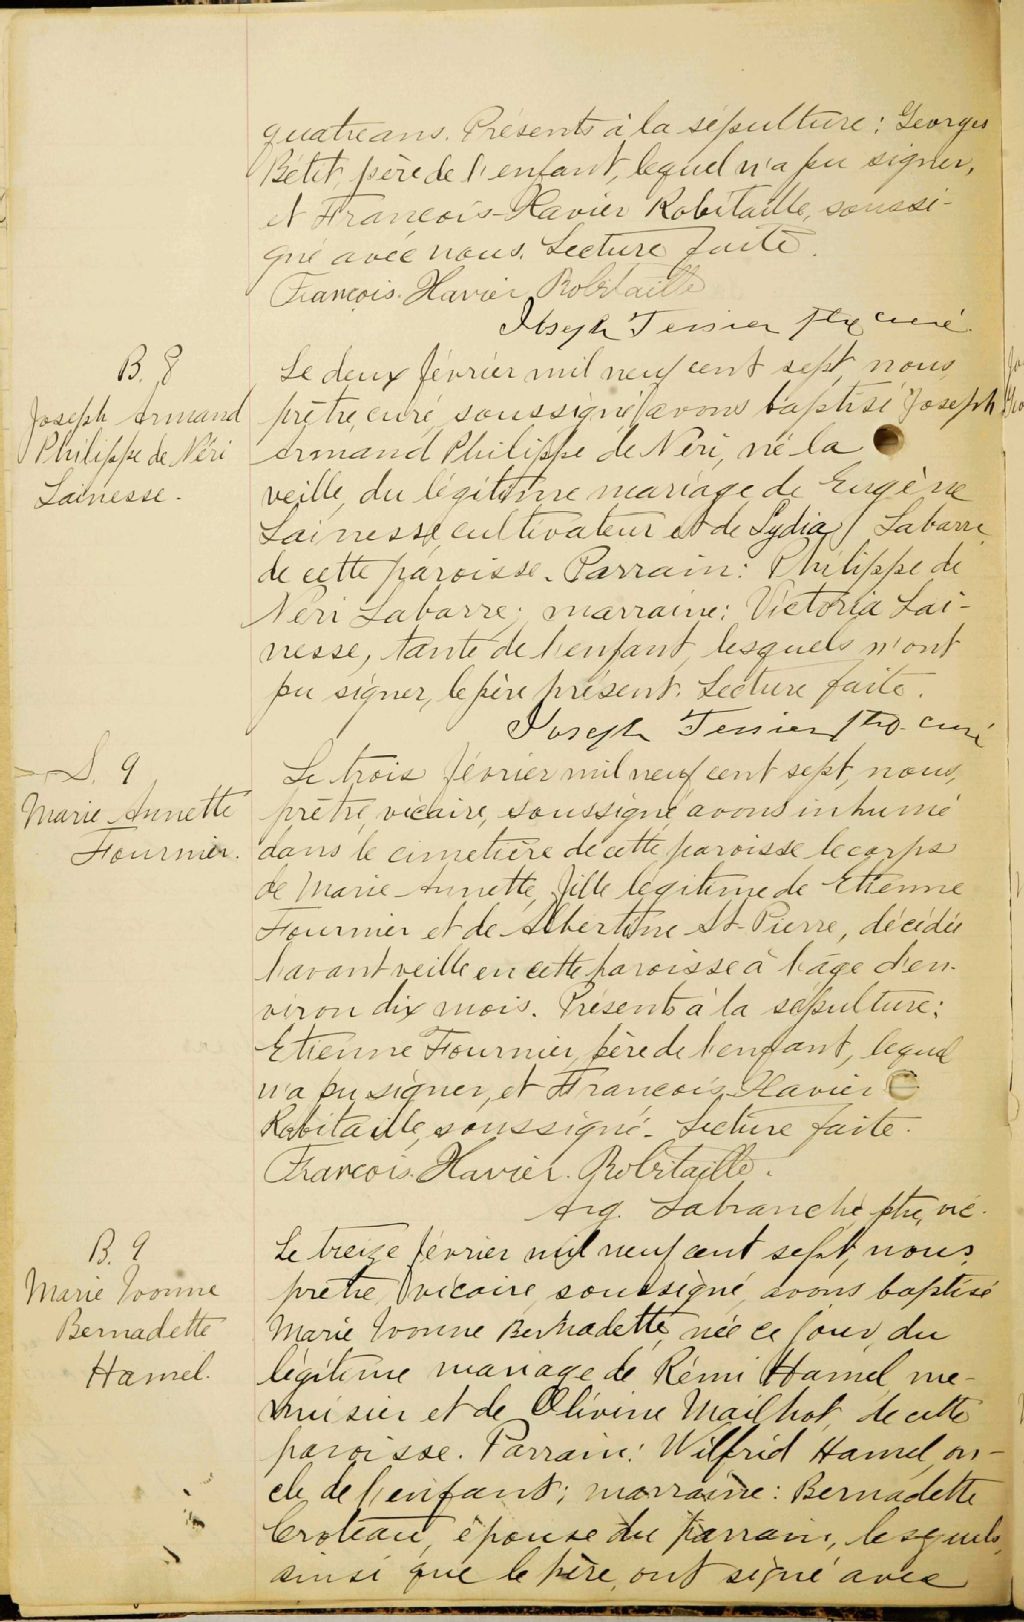 quatre ans. Présents à la sépulture: Georges
Bétit, père de l'enfant, lequel n'a pu signer,
et François-Xavier Robitaille, soussi-
gné avec nous. Lecture faite.
François-Xavier Robitaille
Joseph Tessier ptre curé
B. 8
Joseph Armand
Philippe de Néri
Lainesse.
Le deux février mil neuf cent sept, nous,
prêtre, curé, soussigné, avons baptisé Joseph
Armand Philippe de Néri, né la
veille, du légitime mariage de Eugène
Lainesse, cultivateur et de Lydia Labarre
de cette paroisse. Parrain: Philippe de
Néri Labarre; marraine: Victoria Lai-
nesse, tante de l'enfant, lesquels n'ont
pu signer, le père présent. Lecture faite.
Joseph Tessier ptre. curé
S. 9
Marie Annette
Fournier.
Le trois février mil neuf cent sept, nous,
prêtre, vicaire, soussigné avons inhumé
dans le cimetière de cette paroisse le corps
de Marie-Annette, fille légitime de Etienne
Fournier et de Albertine St-Pierre, décédée
l'avant veille en cette paroisse à l'âge d'en-
viron dix mois. Présents à la sépulture:
Etienne Fournier, père de l'enfant, lequel
n'a pu signer, et François-Xavier
Robitaille, soussigné. Lecture faite.
François-Xavier Robitaille.
Arg. Labranche ptre, vic.
B. 9
Marie Yvonne
Bernadette
Hamel.
Le treize février mil neuf cent sept, nous,
prêtre, vicaire, soussigné, avons baptisé
Marie Yvonne Bernadette, née ce jour, du
légitime mariage de Rémi Hamel, me-
nuisier et de Olivine Mailhot, de cette
paroisse. Parrain: Wilfrid Hamel, on-
cle de l'enfant; marraine: Bernadette
Croteau, épouse du parrain, lesquels,
ainsi que le père, ont signé avec